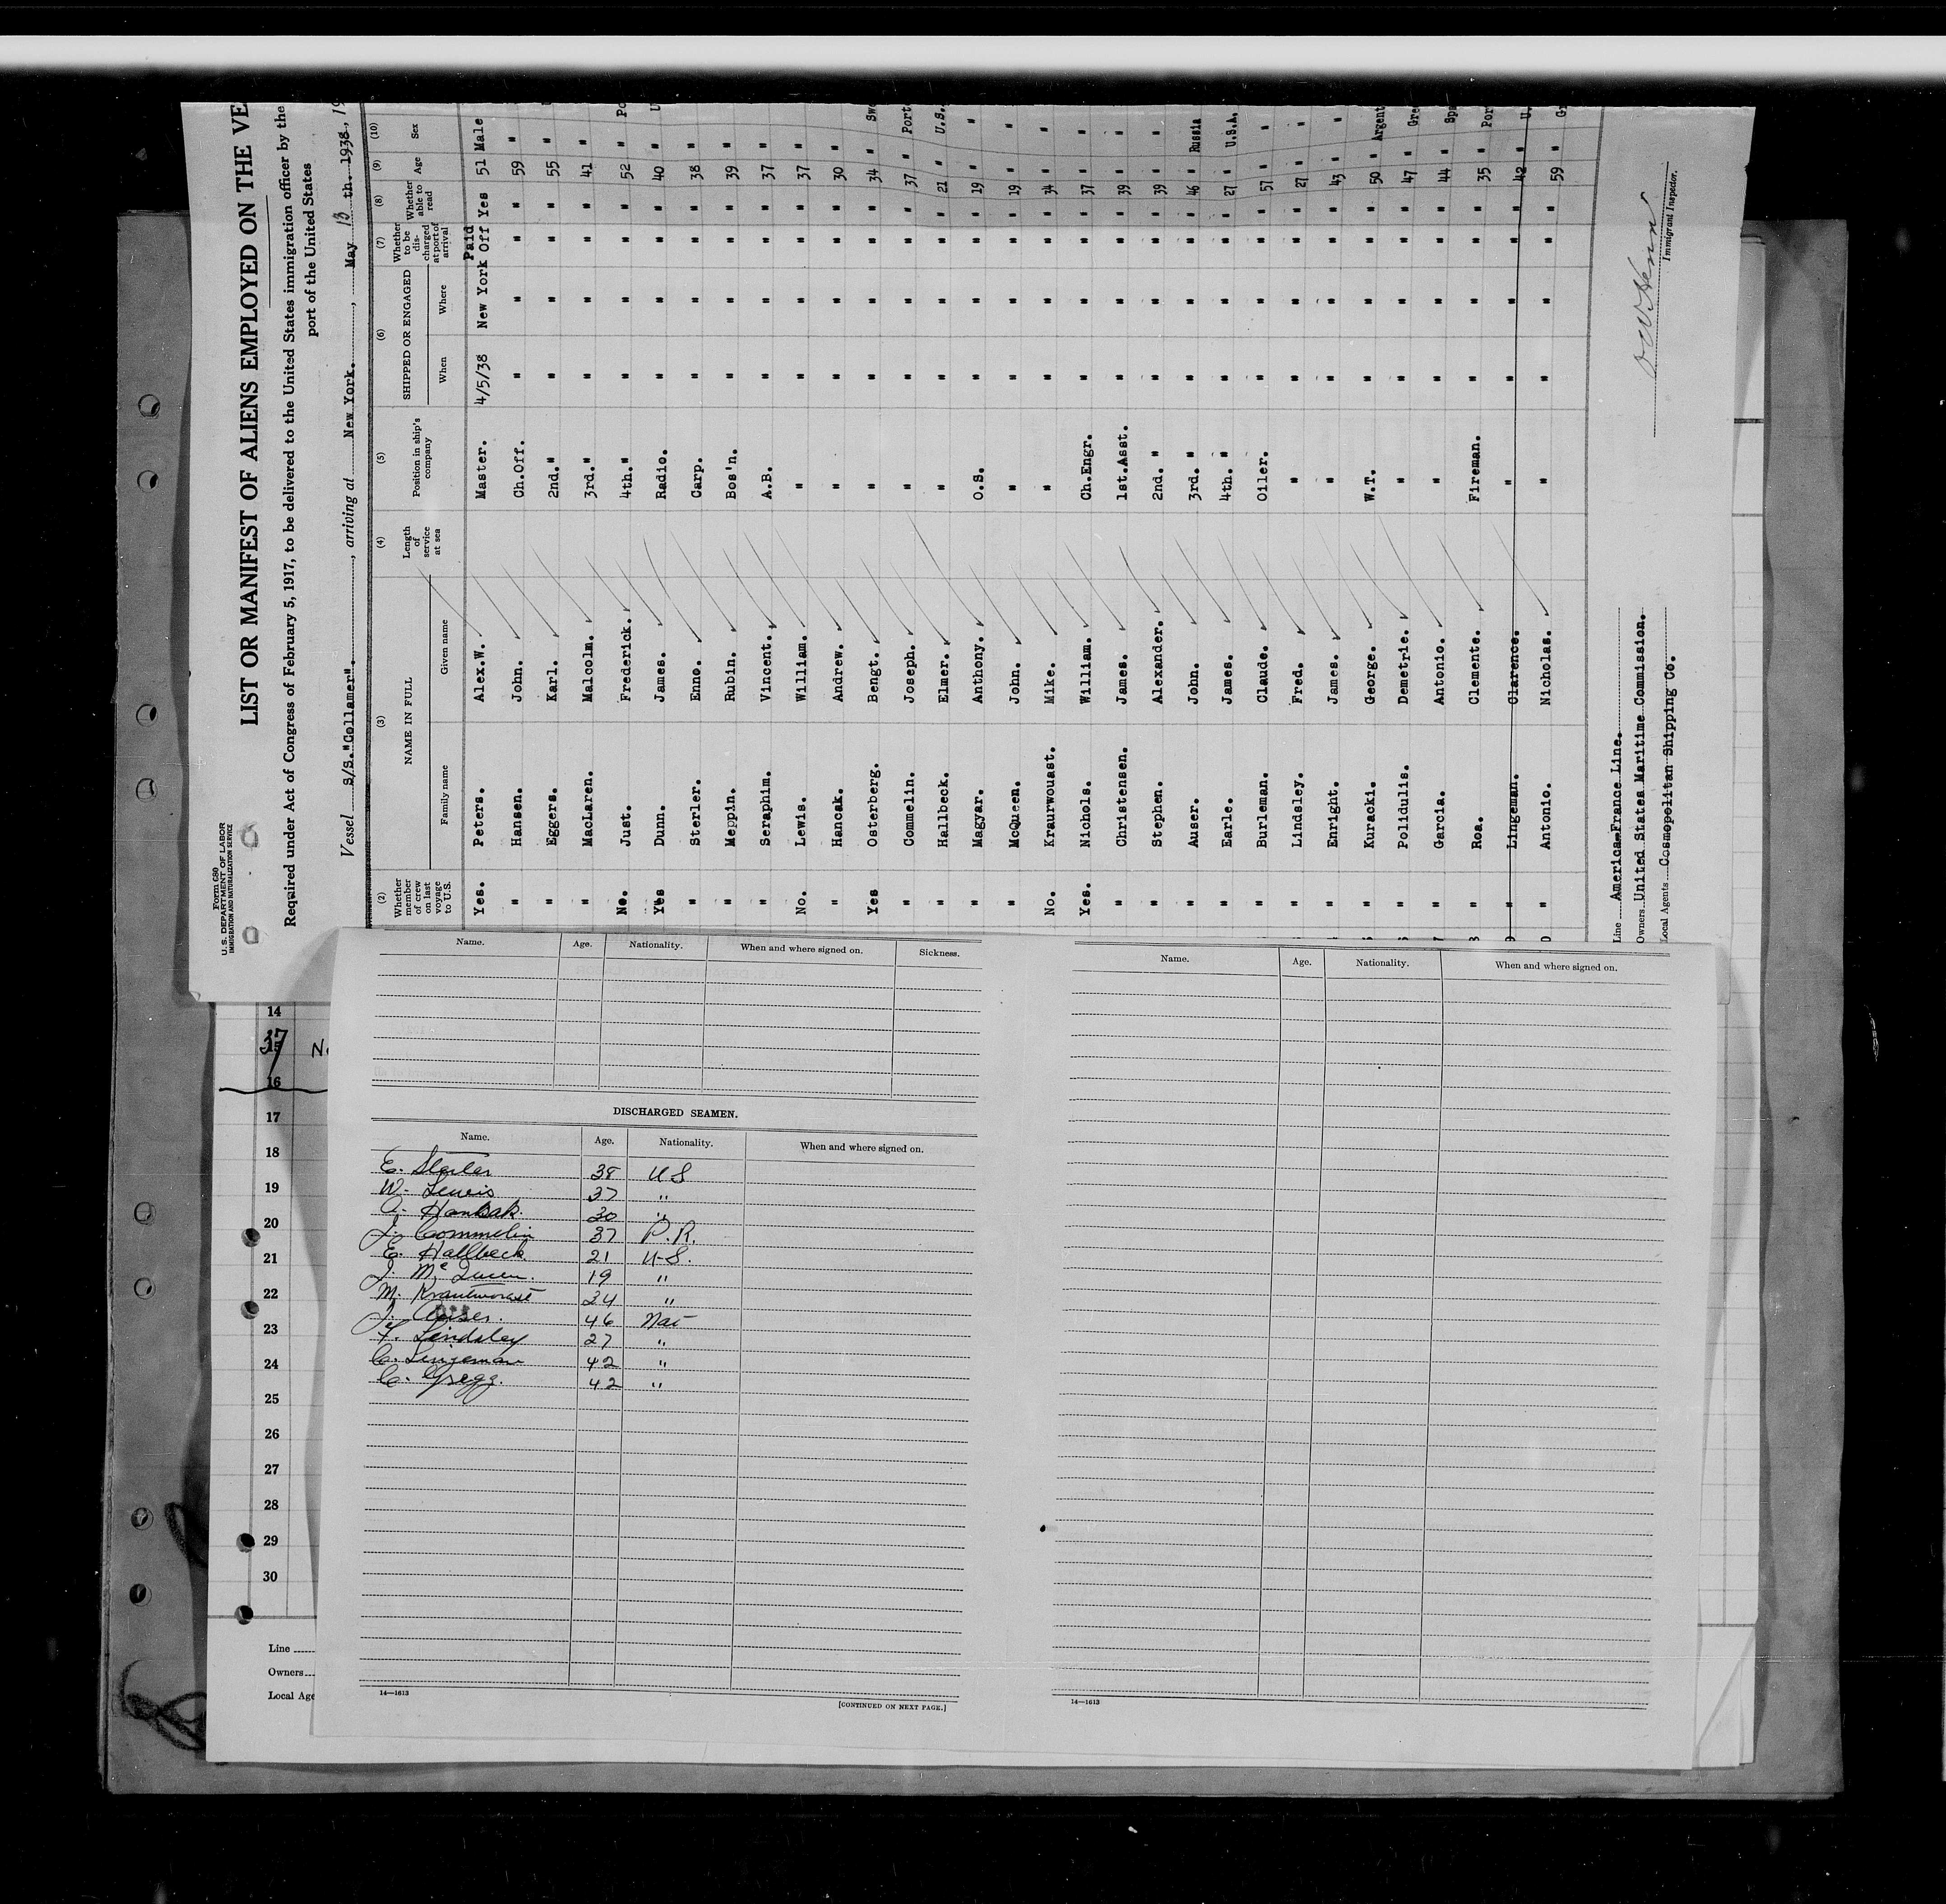 Form 680
U. S. DEPARTMENT OF LABOR
IMMIGRATION AND NATURALIZATION SERVICE
LIST OR MANIFEST OF ALIENS EMPLOYED ON THE VE
Required under Act of Congress of February 5, 1917, to be delivered to the United States immigration officer by the
port of the United States
Vessel S/S."Collamer"., arriving at New York., May 13 th. 1938, 19
(2) (3) (4) (5) (6) (7) (8) (9) (10)
Whether member of crew on last voyage to U.S. NAME IN FULL Family name Given name Length of service at sea Position in ship's company SHIPPED OR ENGAGED When Where Whether to be discharged at port of arrival Whether able to read Age Sex
Yes. Peters. Alex.W. Master. 4/5/38 New York Paid Off Yes 51 Male
" Hansen. John. Ch.Off. " " " " 59 "
" Eggers. Karl. 2nd." " " " " 55 "
" MacLaren. Malcolm. 3rd." " " " " 41 "
No. Just. Frederick. 4th." " " " " 52 " Po
Yes Dunn. James. Radio. " " " " 40 " U
" Sterler. Enno. Carp. " " " " 38 "
" Meppin. Rubin. Bos'n. " " " " 39 "
" Seraphim. Vincent. A.B. " " " " 37 "
No. Lewis. William. " " " " " 37 "
" Hancak. Andrew. " " " " " 30 "
Yes Osterberg. Bengt. " " " " " 34 " Swe
" Commelin. Joseph. " " " " " 37 " Porto
" Hallbeck. Elmer. " " " " " 21 " U.S.
" Magyar. Anthony. O.S. " " " " 19 " "
" McQueen. John. " " " " " 19 " "
No. Kraurwouast. Mike. " " " " " 34 " "
Yes. Nichols. William. Ch.Engr. " " " " 37 " "
" Christensen. James. 1st.Asst. " " " " 39 " "
" Stephen. Alexander. 2nd. " " " " " 39 " "
" Auser. John. 3rd. " " " " " 46 " Russia
" Earle. James. 4th. " " " " " 27 " U.S.A.
" Burleman. Claude. Oiler. " " " " 57 " "
" Lindsley. Fred. " " " " " 27 " "
" Enright. James. " " " " " 43 " "
" Kuracki. George. W.T. " " " " 50 " Argent
" Polidulis. Demetrie. " " " " " 47 " Gre
" Garcia. Antonio. " " " " " 44 " Spa
" Roa. Clemente. Fireman. " " " " 35 " Por
" Lingeman. Clarence. " " " " " 42 " U.
" Antonio. Nicholas. " " " " " 59 " Gr
Line America-France Line.
Owners United States Maritime Commission.
Local Agents Cosmopolitan Shipping Co.
Immigrant Inspector.
Name. Age. Nationality. When and where signed on. Sickness.
DISCHARGED SEAMEN.
Name. Age. Nationality. When and where signed on.
E. Sterler 38 U S
W. Lewis 37 "
A. Hankak. 30 "
J. Commelin 37 P.R.
E. Hallbeck 21 U-S.
J. McQueen. 19 "
M. Krautworast 34 "
J. Auser. 46 Nat
F. Lindsley 27 "
C. Lingeman 42 "
C. Gregg. 42 "
14—1613
[CONTINUED ON NEXT PAGE.]
Name. Age. Nationality. When and where signed on.
14—1613
14
37
15
16
17
18
19
20
21
22
23
24
25
26
27
28
29
30
Line
Owners
Local Age